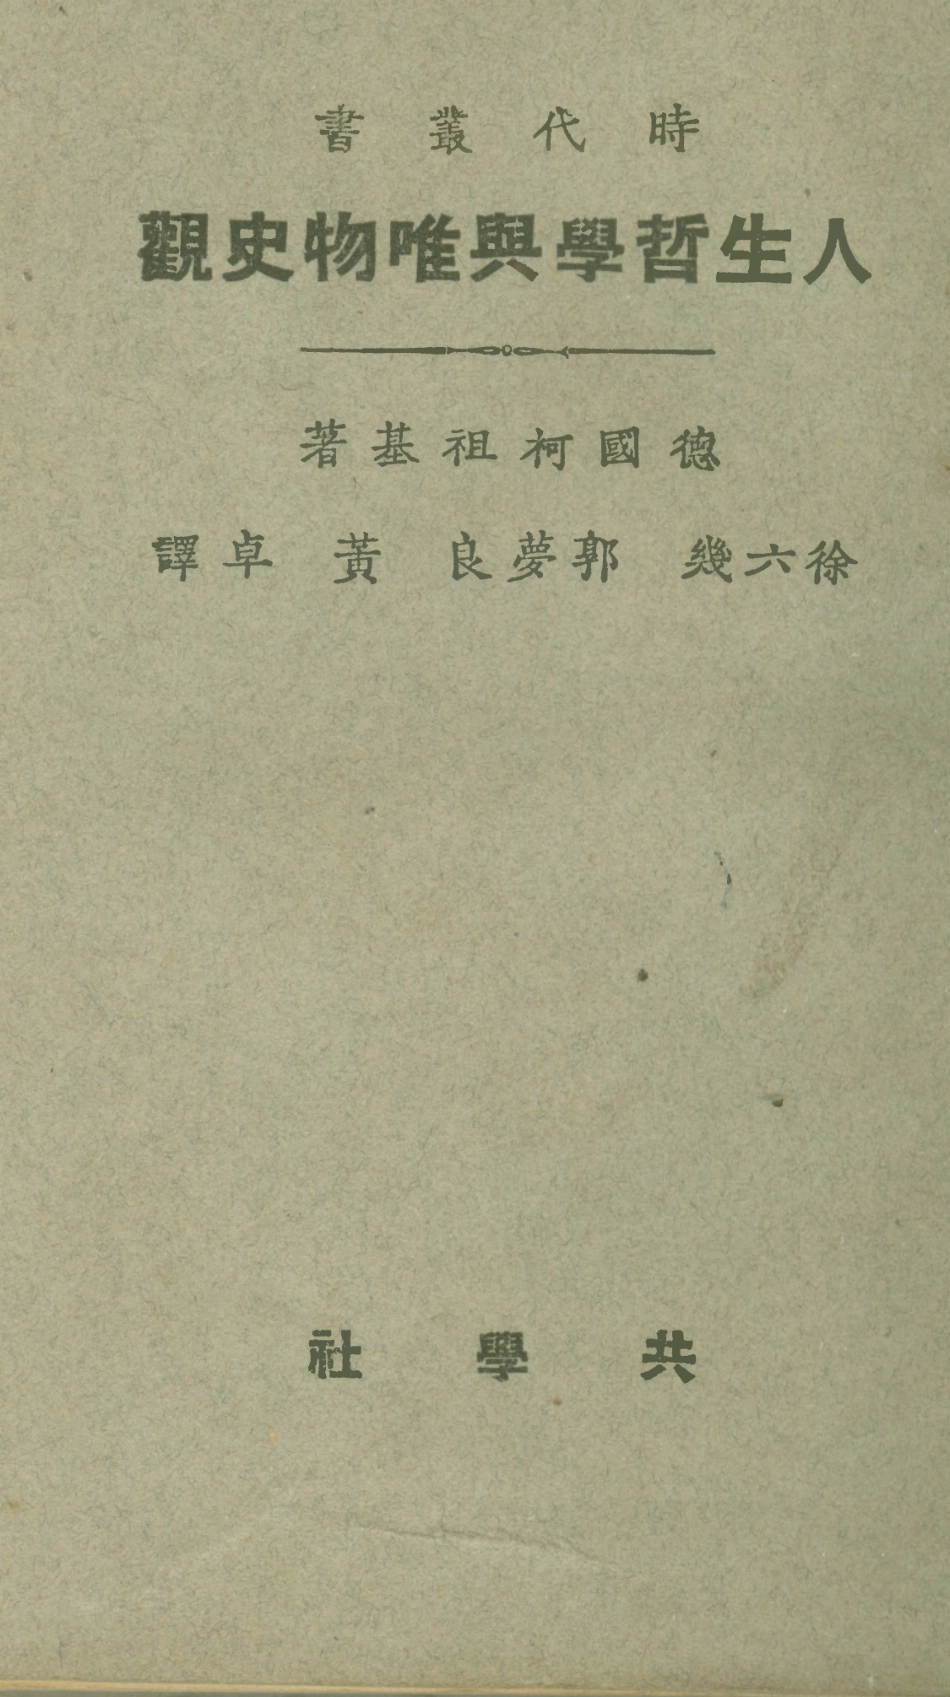 時代叢書
人生哲學與唯物史觀
德國柯祖基著
徐六幾 郭夢良 黃卓譯
共學社